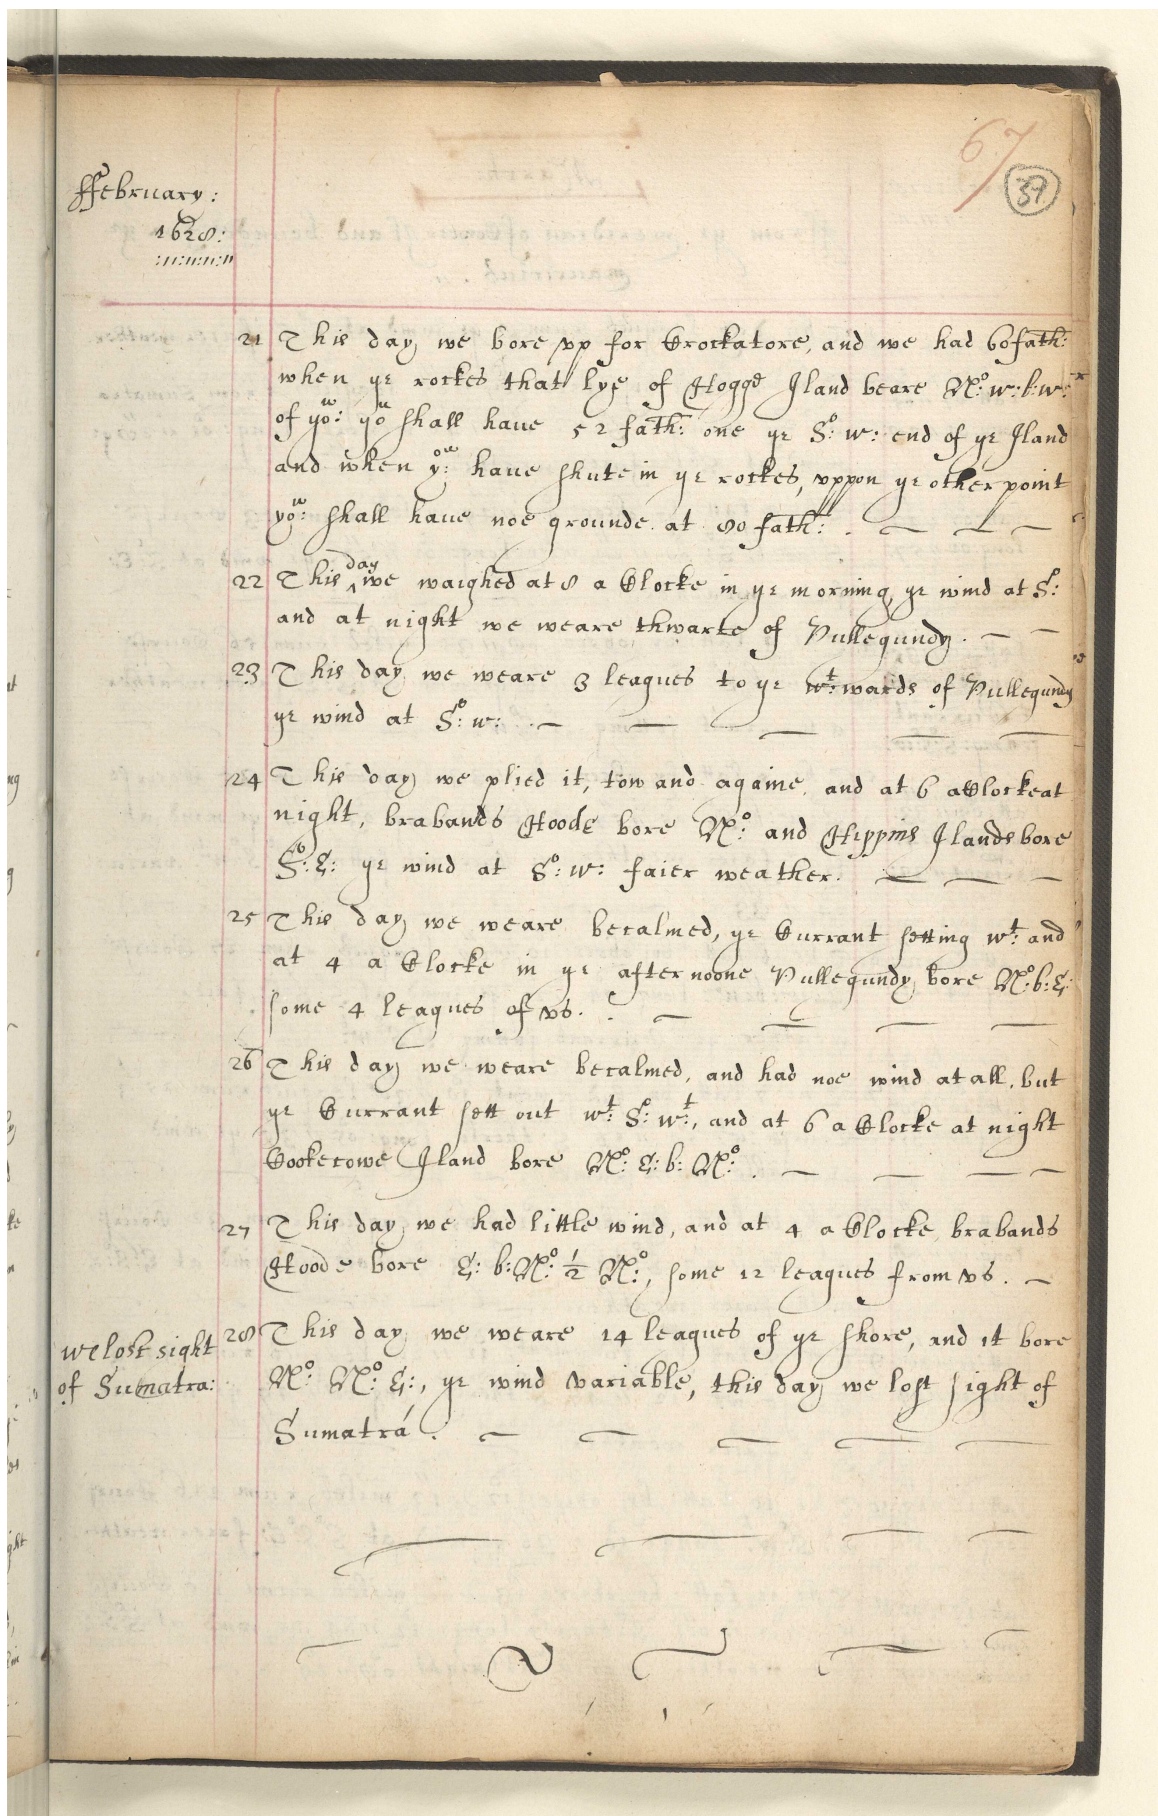 67
39
ffebruary:
1628:
21 This day we bore vp for Crockatore, and we had 60 fath:
when ye rockes that lye of Hoggs Iland beare No: w: b: w:
of yow: yow shall haue 52 fath: one ye So: w: end of ye Iland
and when yow: haue shute in ye rockes, vppon ye other point
yow: shall haue noe grounde at 80 fath: .
22 This day we waighed at 8 a Clocke in ye morning ye wind at So:
and at night we weare thwarte of Pullegundy.
23 This day we weare 3 leagues to ye wt:wards of Pullegundy
ye wind at So: w:
24 This day we plied it, tow and againe, and at 6 a Clocke at
night, brabands Hoode bore No: and Hippins Ilands bore
So: E: ye wind at So: w: faier weather.
25 This day we weare becalmed, ye Currant setting wt: and
at 4 a Clocke in ye afternoone Pullegundy bore No: b: E:
some 4 leagues of vs.
26 This day we weare becalmed, and had noe wind at all, but
ye Currant sett out wt: So: wt:, and at 6 a Clocke at night
Cookecowe Iland bore No: E: b: No: .
27 This day we had little wind, and at 4 a Clocke brabands
Hoode bore E: b: No: ½ No:, some 12 leagues from vs.
we lost sight
of Sumatra:
28 This day we weare 14 leagues of ye shore, and it bore
No: No: E:, ye wind variable, this day we lost sight of
Sumatra.